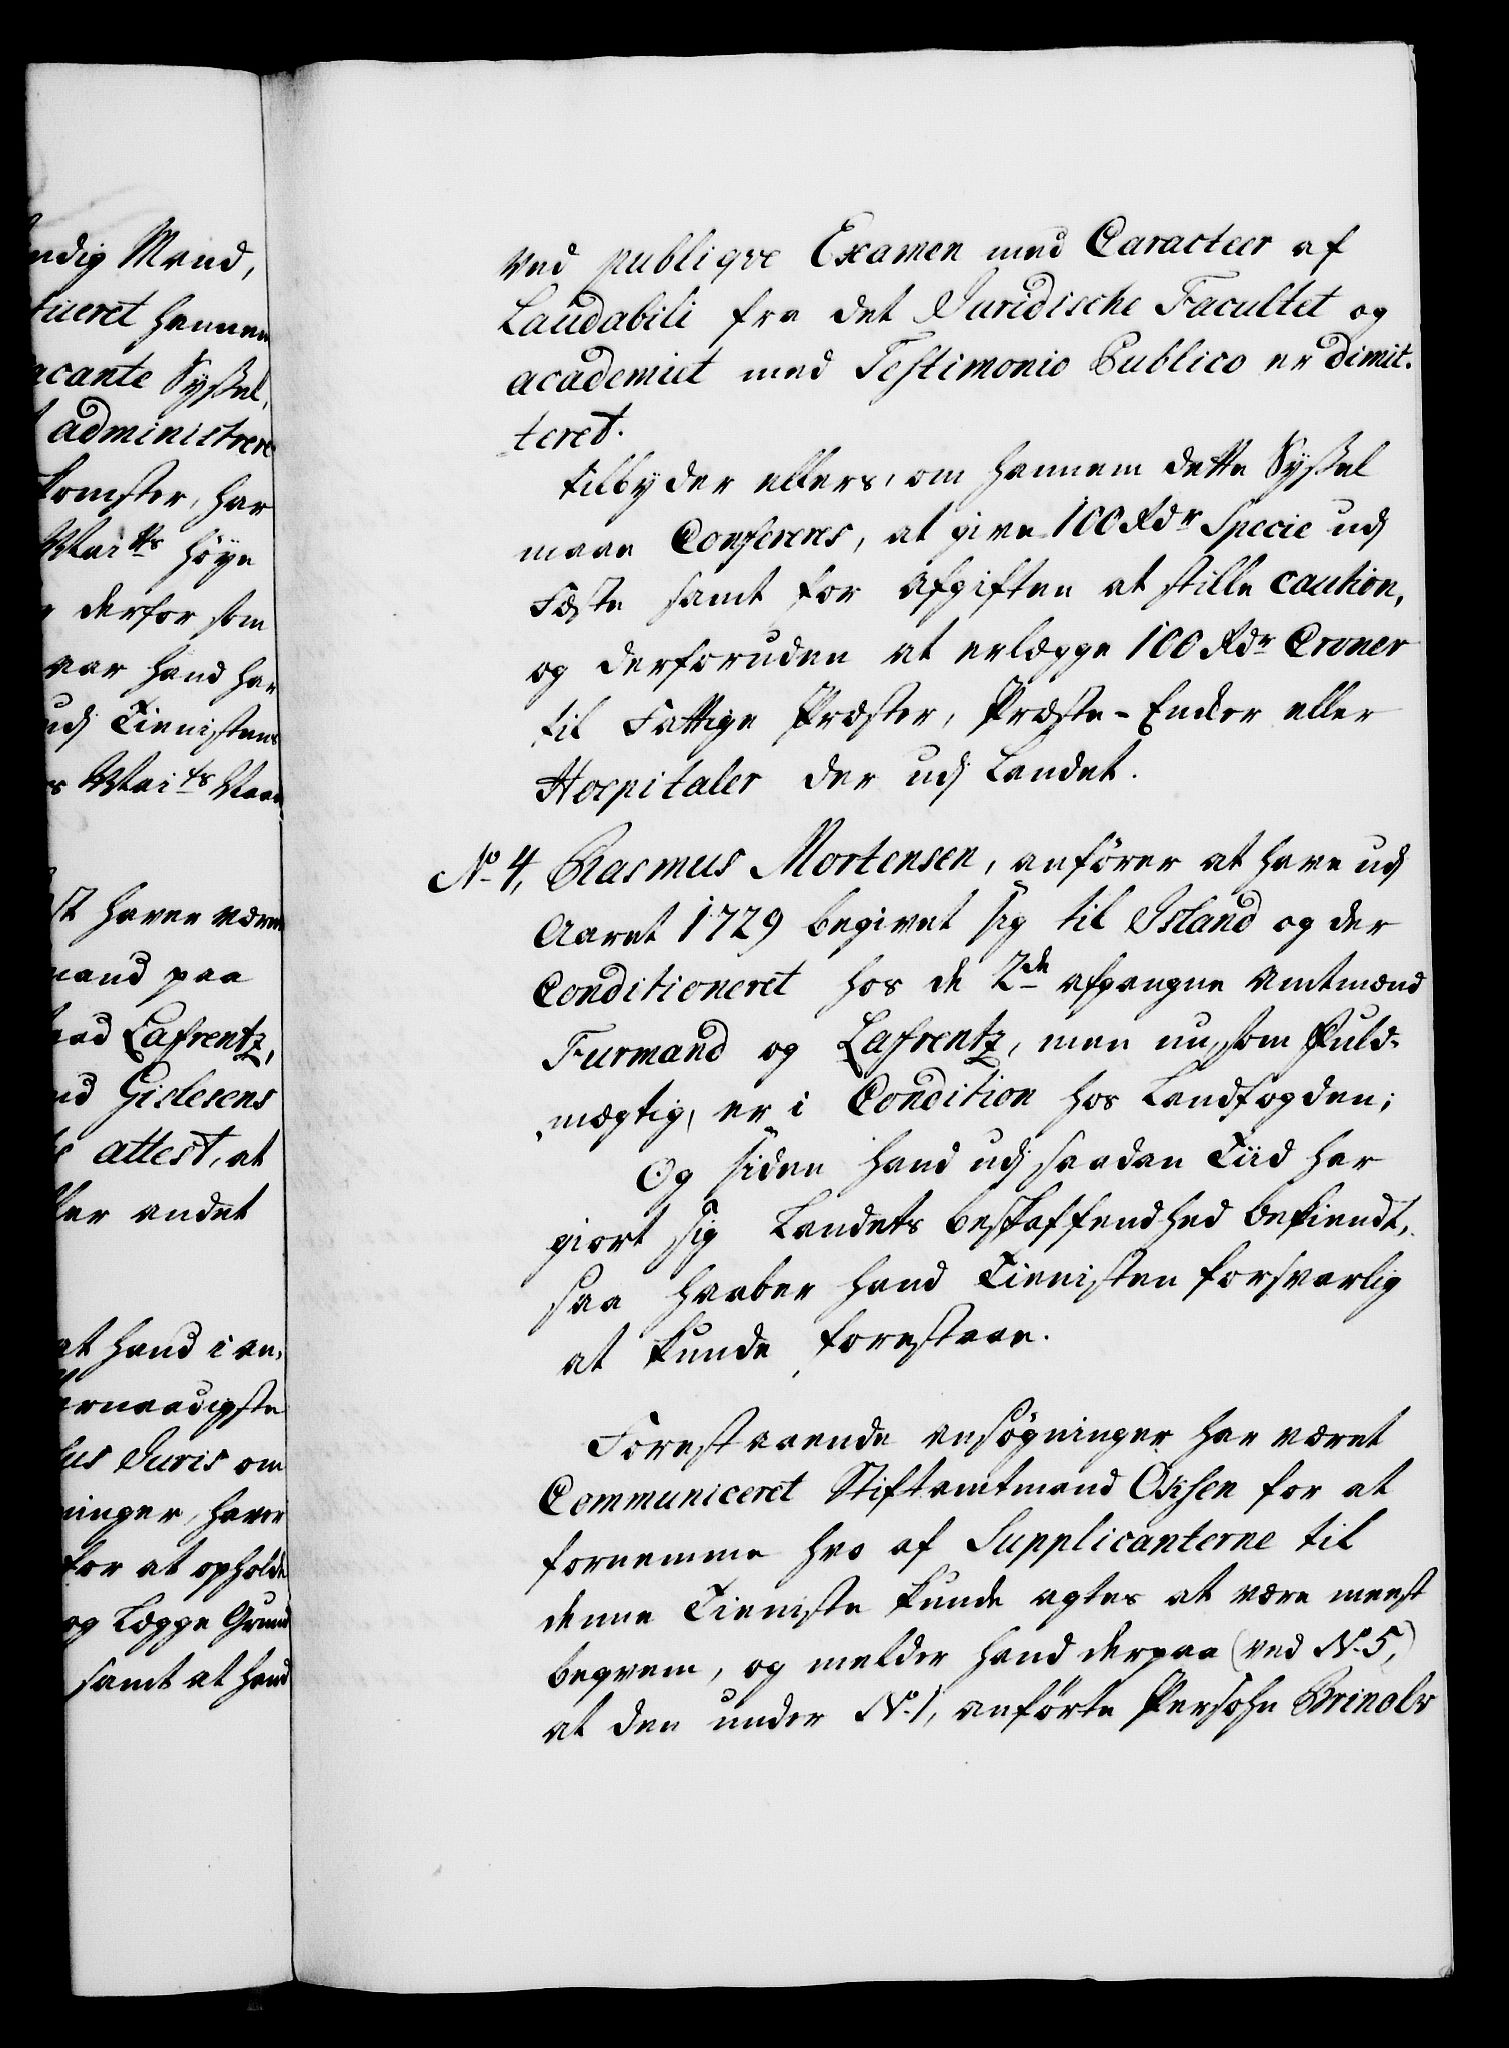 ndig Mand,
tueret hannem
acante Syssel,
administrere
komster, har
Maitts höye
derfor som
var hand har
udj Tienisten
Maits Naad
st haver været
mand paa
Lafrentz,
nd Gislesens
attest, at
ller andet
at hand i an-
ernaadigste
us Juris om
ninger, haver
for at opholde
og Lægge Grund
samt at hand
ved publiqve Examen med Caracteer af
Laudabili fra det Juridische Facultet og
academiet med Testimonio Publico er dimit-
teret.
tilbyder ellers, om hannem dette Syssel
maae Confereres, at give 100 Rdr Specie udj
Fæste samt for Afgiften at stille caution,
og derforuden at erlægge 100 Rdr Croner
til Fattige Præster, Præste-Enker eller
Hospitaler der udj Landet.
No 4, Rasmus Mortensen, anförer at have udj
Aaret 1729 begivet sig til Island og der
Conditioneret hos de 2de afgangne Amtmænd
Furmand og Lafrentz, men nu, som Fuld-
mægtig, er i Condition hos Landfogden;
Og siden hand udj saadan Tiid har
giort sig Landets beskaffendhed bekiendt,
saa haaber hand Tienisten forsvarlig
at kunde forestaae.
Forestaaende ansögninger har været
Communiceret Stiftamtmand Ochsen for at
fornemme hvo af Supplicanterne til
denne Tieniste kunde agtes at være meest
beqvem, og melder hand derpaa (ved No 5,)
at den under No 1, anförte Persohn Brinolv